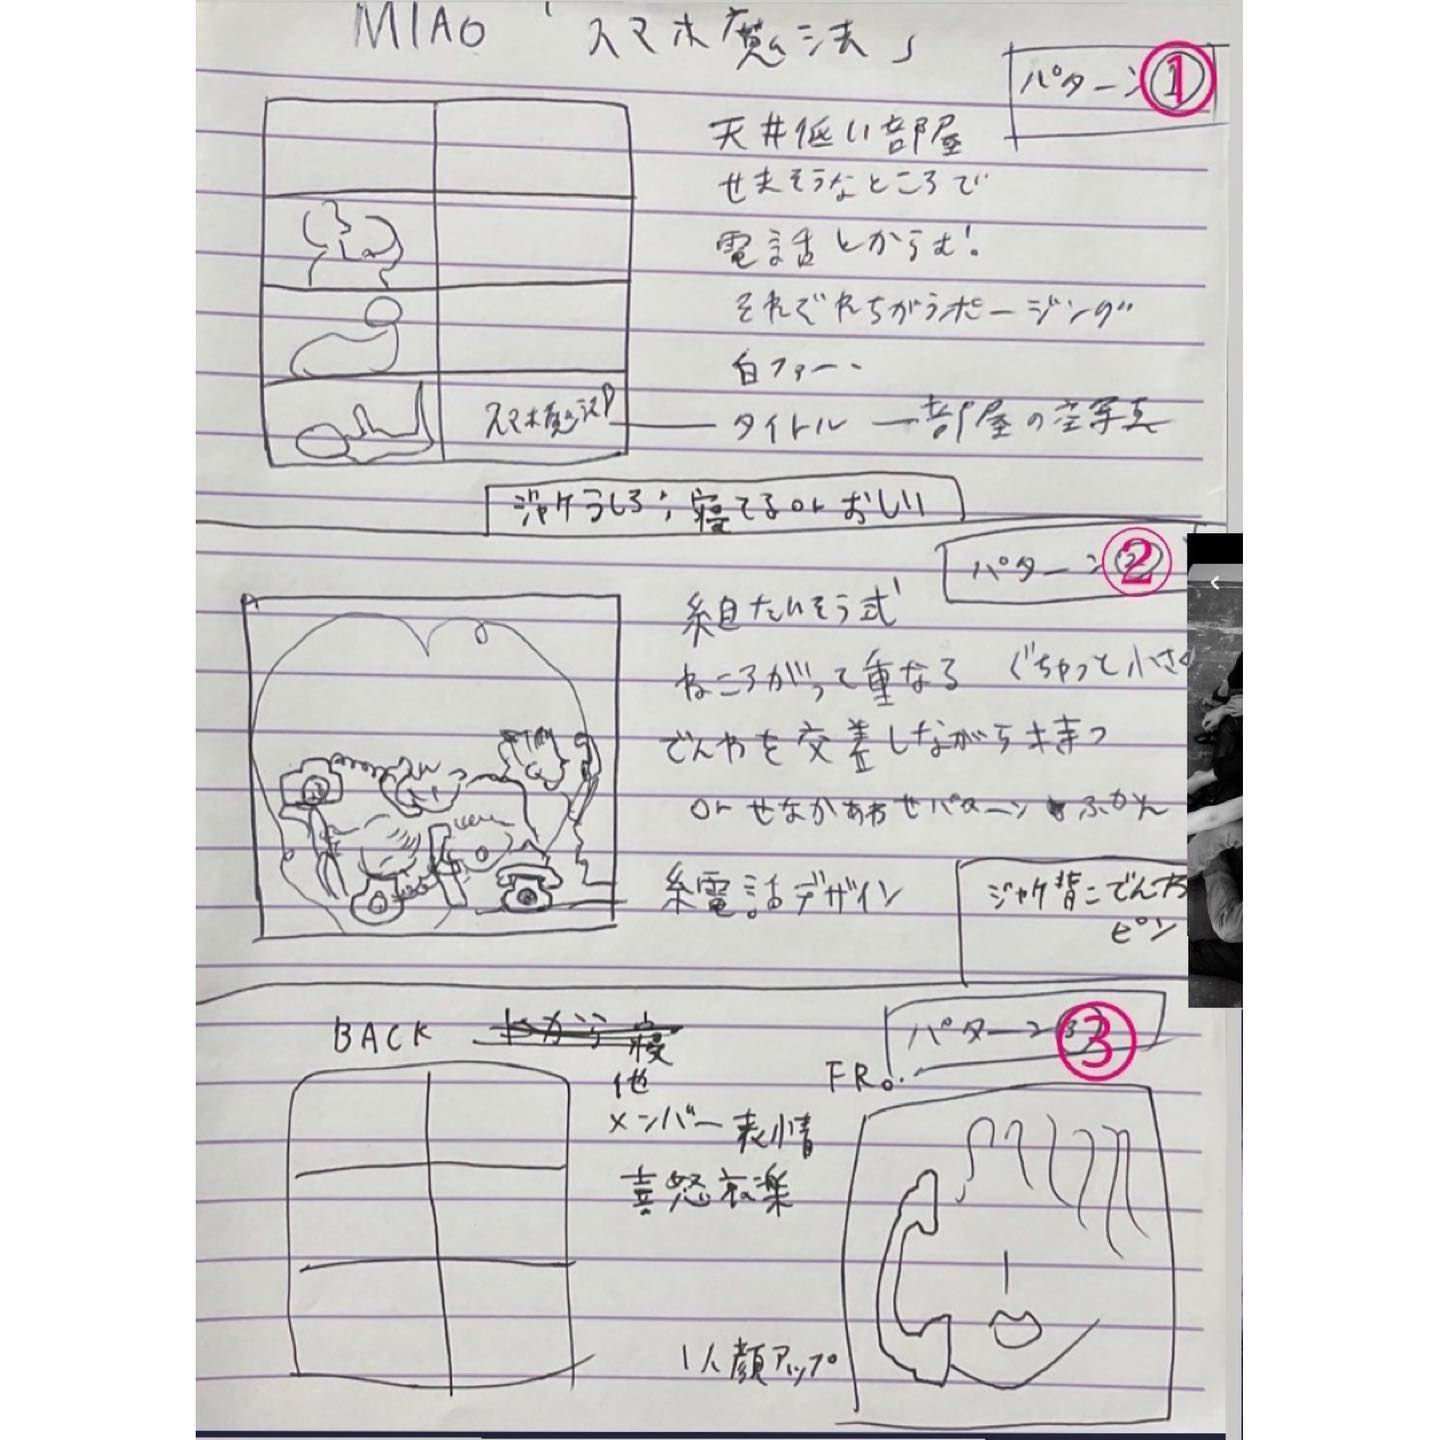 MIAO 「スマホ魔法」
パターン①
天井低い部屋
せまそうなところで
電話とからむ!
それぞれちがうポージング
白ファー
スマホ魔法 タイトル 部屋の空写真
ジャケうしろ; 寝てる or おしり
パターン②
組たいそう式
ねころがって重なる ぐちゃっと小さく
でんわを交差しながら持つ
or せなかあわせパターン ふかん
糸電話デザイン
ジャケ背こでんわ
ピン
BACK
パターン③
FRO.
他
メンバー表情
喜怒哀楽
1人顔アップ